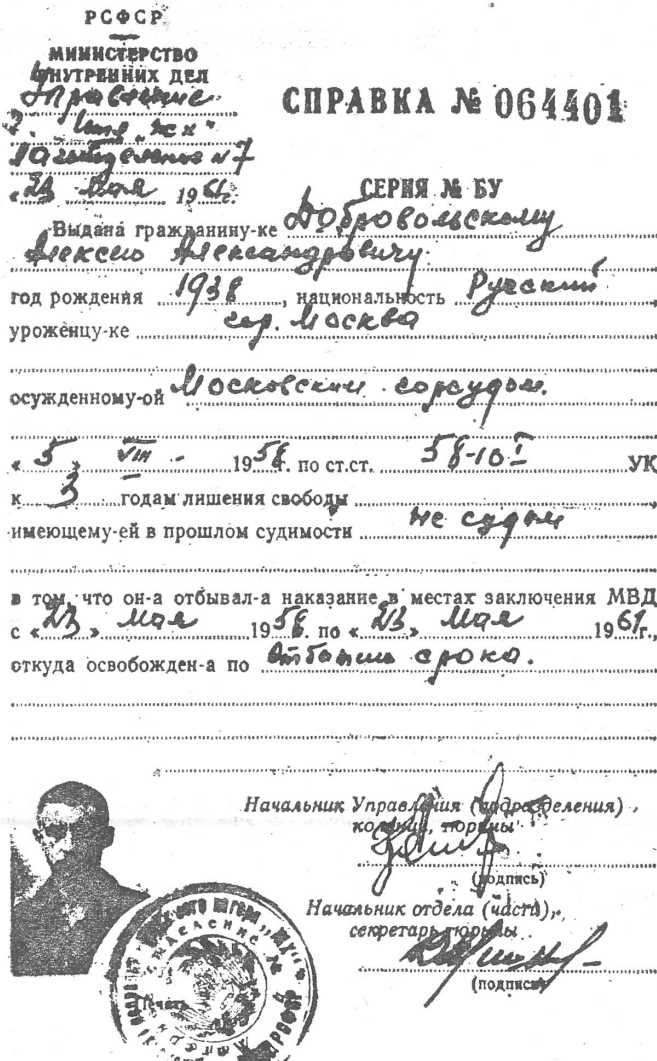 РСФСР
МИНИСТЕРСТВО
ВНУТРЕННИХ ДЕЛ
Управление
п/отделение №7
«23» Мая 1961г.
СПРАВКА № 064401
СЕРИЯ № БУ
Выдана гражданину-ке Добровольскому
Алексею Александровичу
год рождения 1938, национальность Русский
уроженцу-ке гор. Москва
осужденному-ой Московским горсудом.
«5» VIII 1958г. по ст.ст. 58-10 I УК
к 3 годам лишения свободы
имеющему-ей в прошлом судимости не судим
в том, что он-а отбывал-а наказание в местах заключения МВД
с «23» Мая 1958г. по «23» Мая 1961г.,
откуда освобожден-а по отбытии срока.
Начальник Управления (подразделения)
колонии, тюрьмы
(подпись)
Начальник отдела (части),
секретарь тюрьмы
(подпись)
Печать